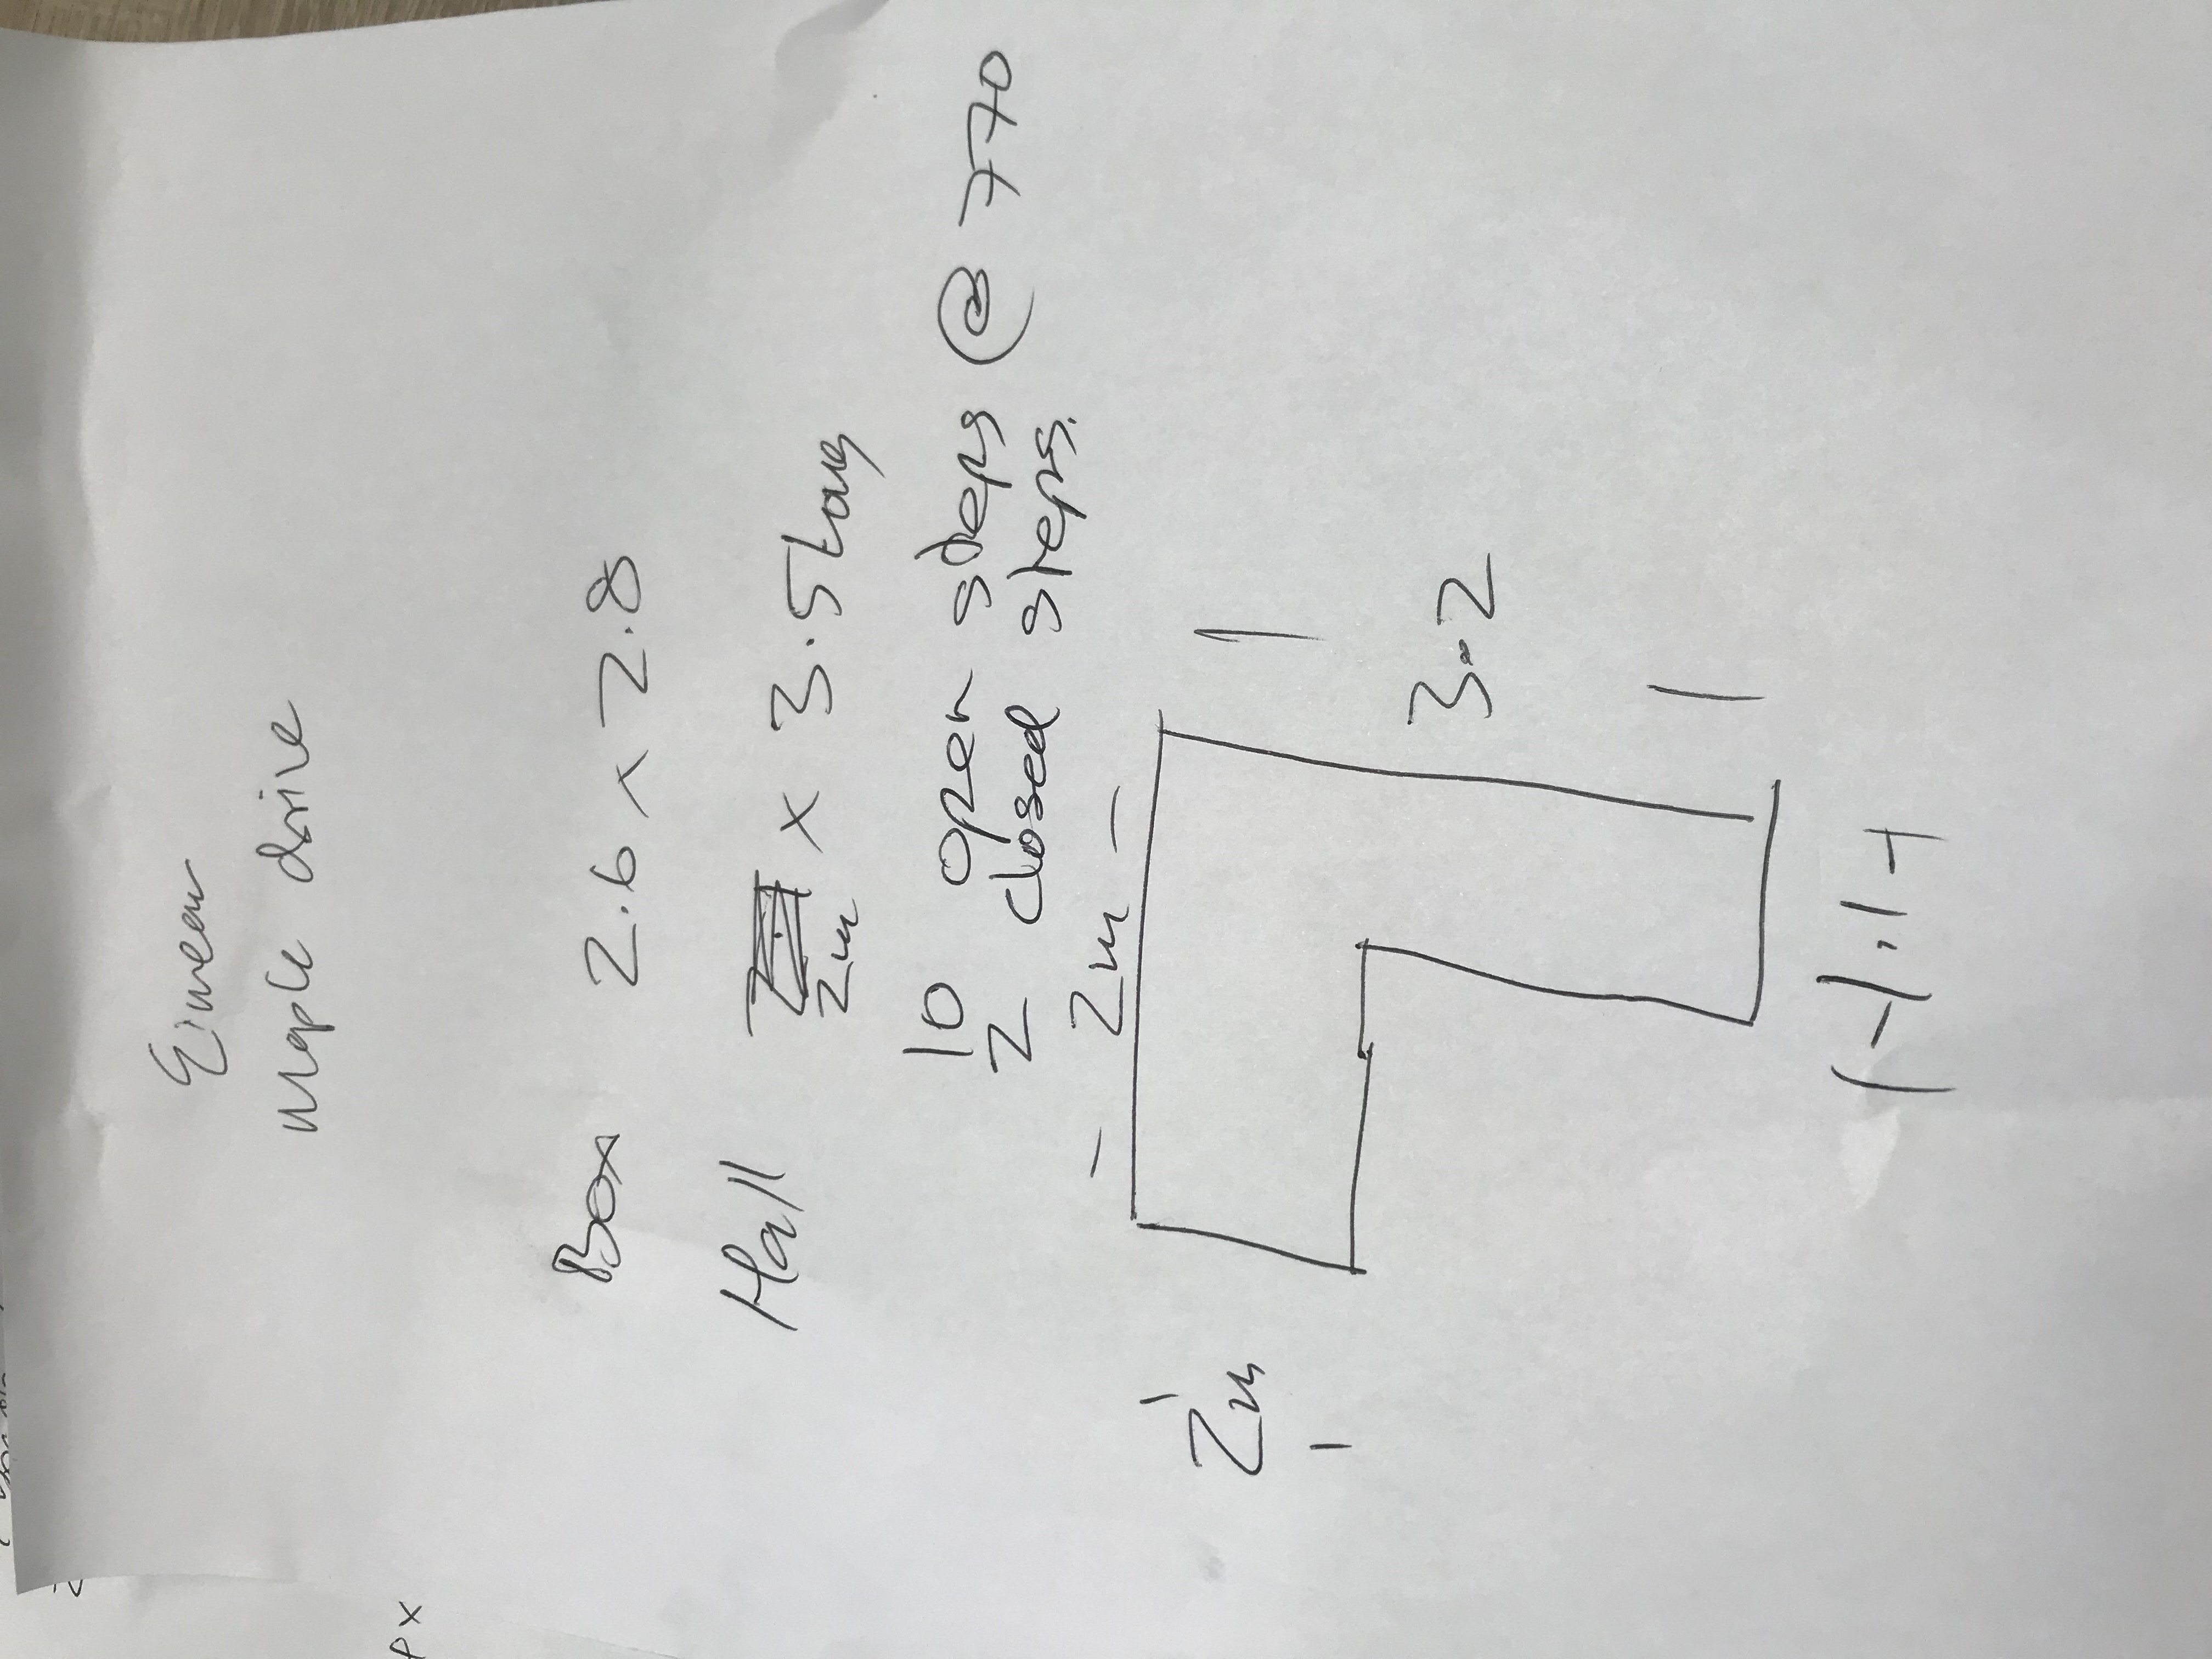 Eimear
maple drive
Box 2.6 x 2.8
Hall 2m x 3.5 Long
10 open steps @ 770
2 closed steps.
- 2m -
2m
3.2
1.1
px